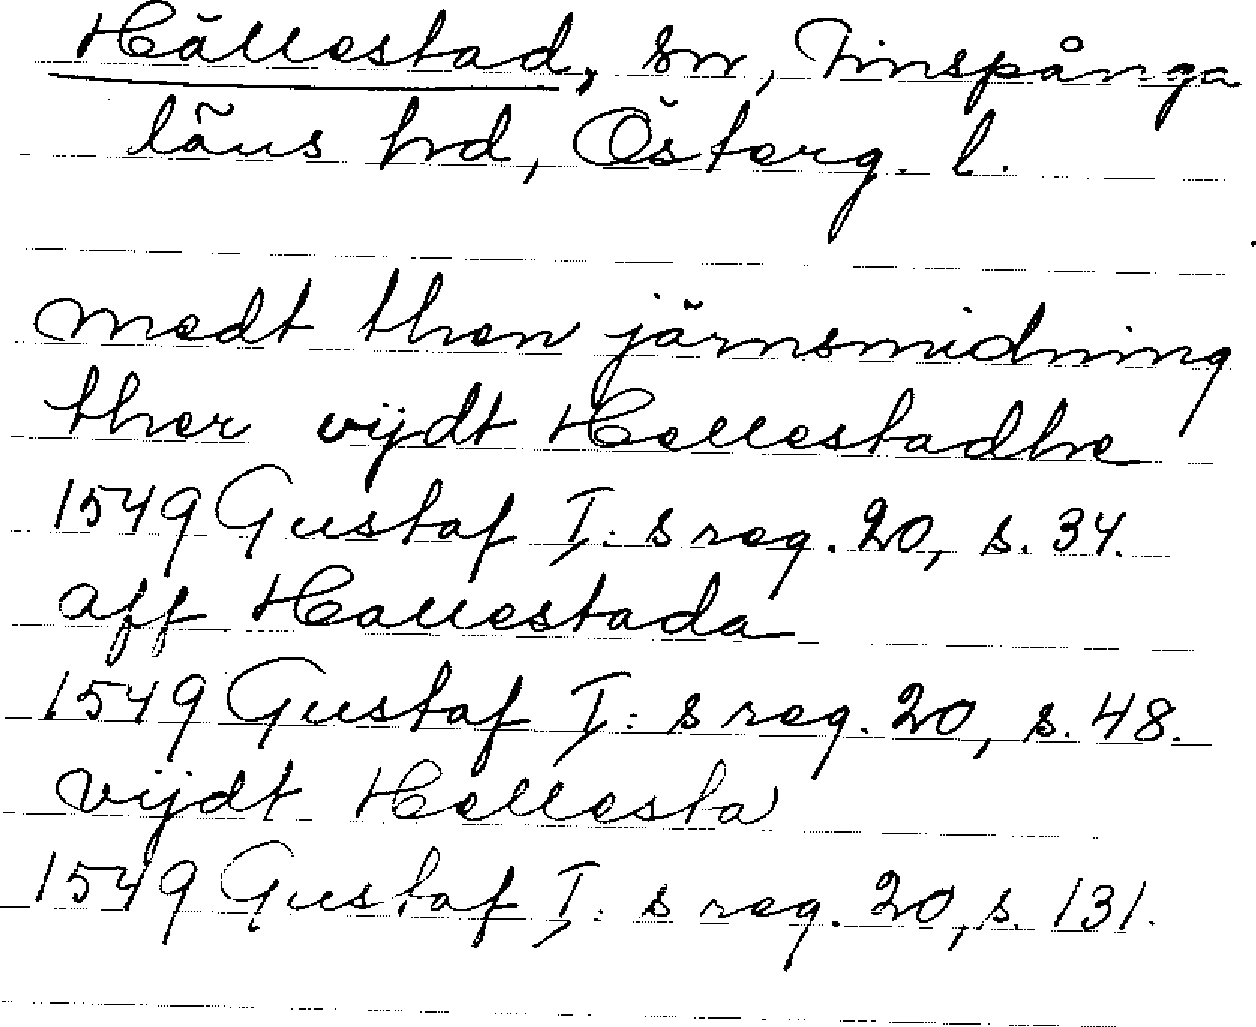 Hällestad, sn, Finspånga
läns hd, Österg. l.
medt then järnsmidning
ther vijdt Hellestadhe
1549 Gustaf I:s reg. 20, s. 34.
aff Hallestada
1549 Gustaf I:s reg. 20, s. 48.
vijdt Hellesta
1549 Gustaf I:s reg. 20, s. 131.